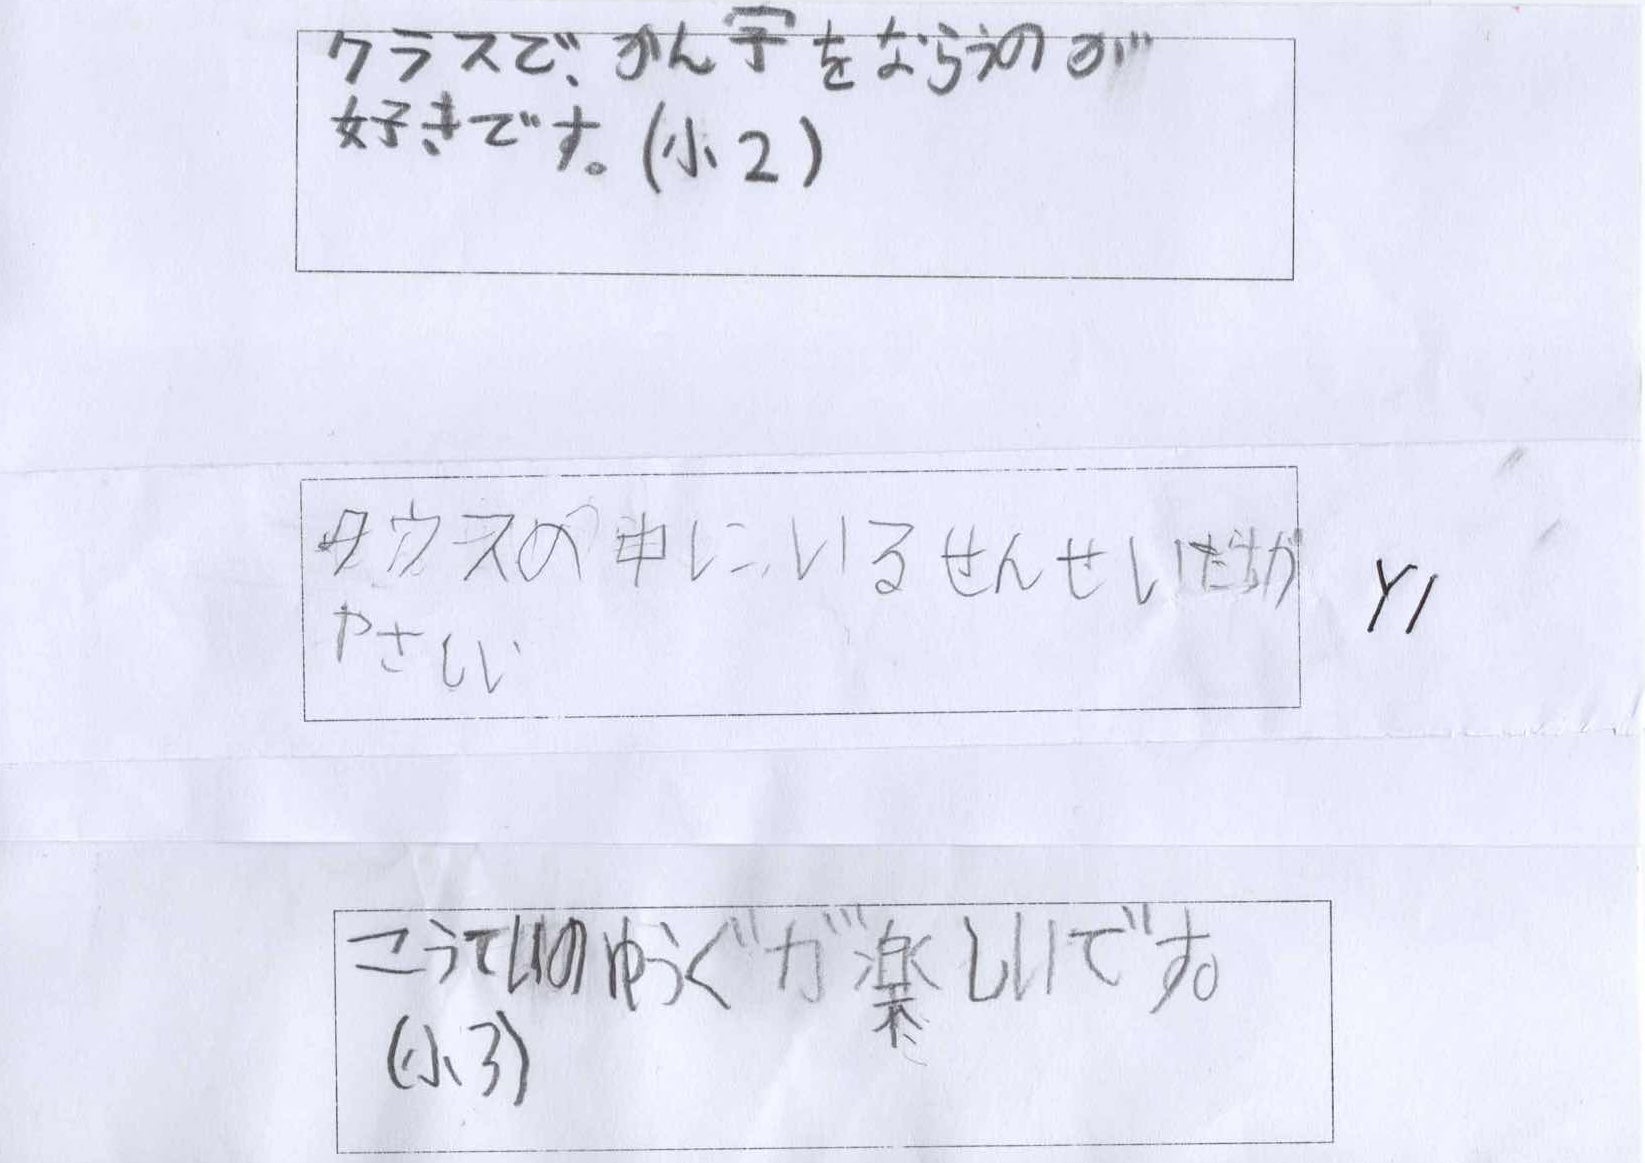 クラスで、かん字をならうのが
好きです。(小2)
クラスの中にいるせんせいたちが
やさしい
Y1
こうていのゆうぐが楽しいです。
(小3)